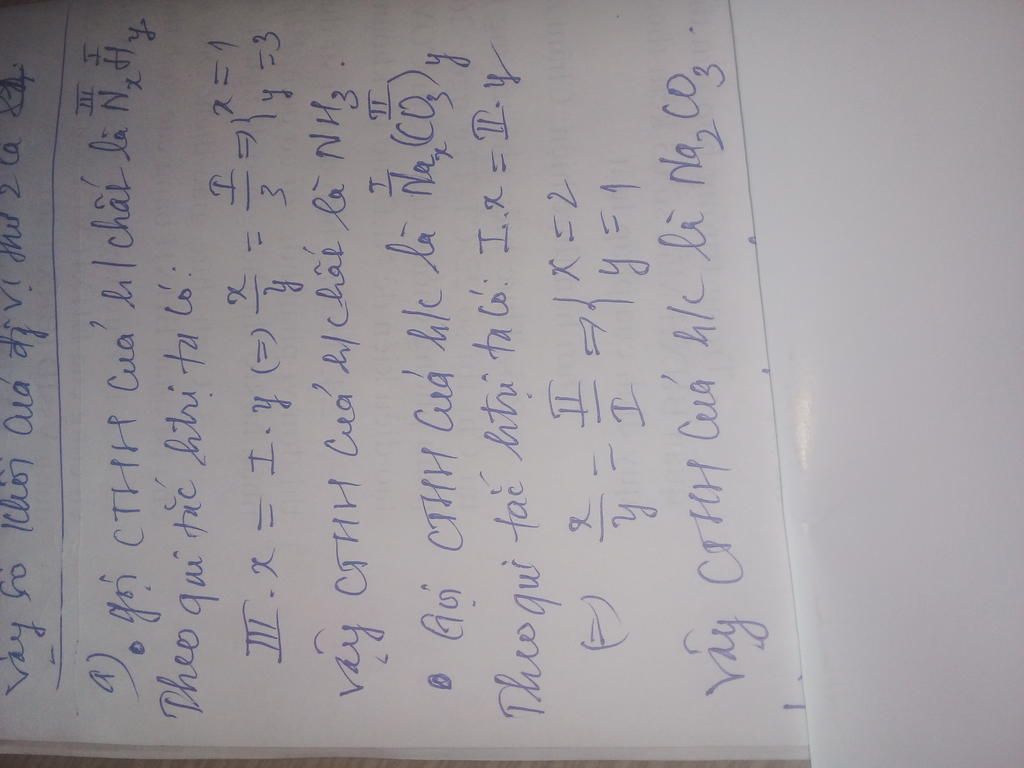 Vậy số khối của đvị thứ 2 là
a) • gọi CTHH của h/chất là NxHy
III I
Theo qui tắc htrị ta có:
III . x = I . y (=) x/y = I/3 => { x = 1 y = 3
Vậy CTHH của h/chất là NH3.
• Gọi CTHH của h/c là Nax(CO3)y
I II
Theo qui tắc htrị ta có: I . x = II . y
(=) x/y = II/I => { x = 2 y = 1
Vậy CTHH của h/c là Na2CO3.